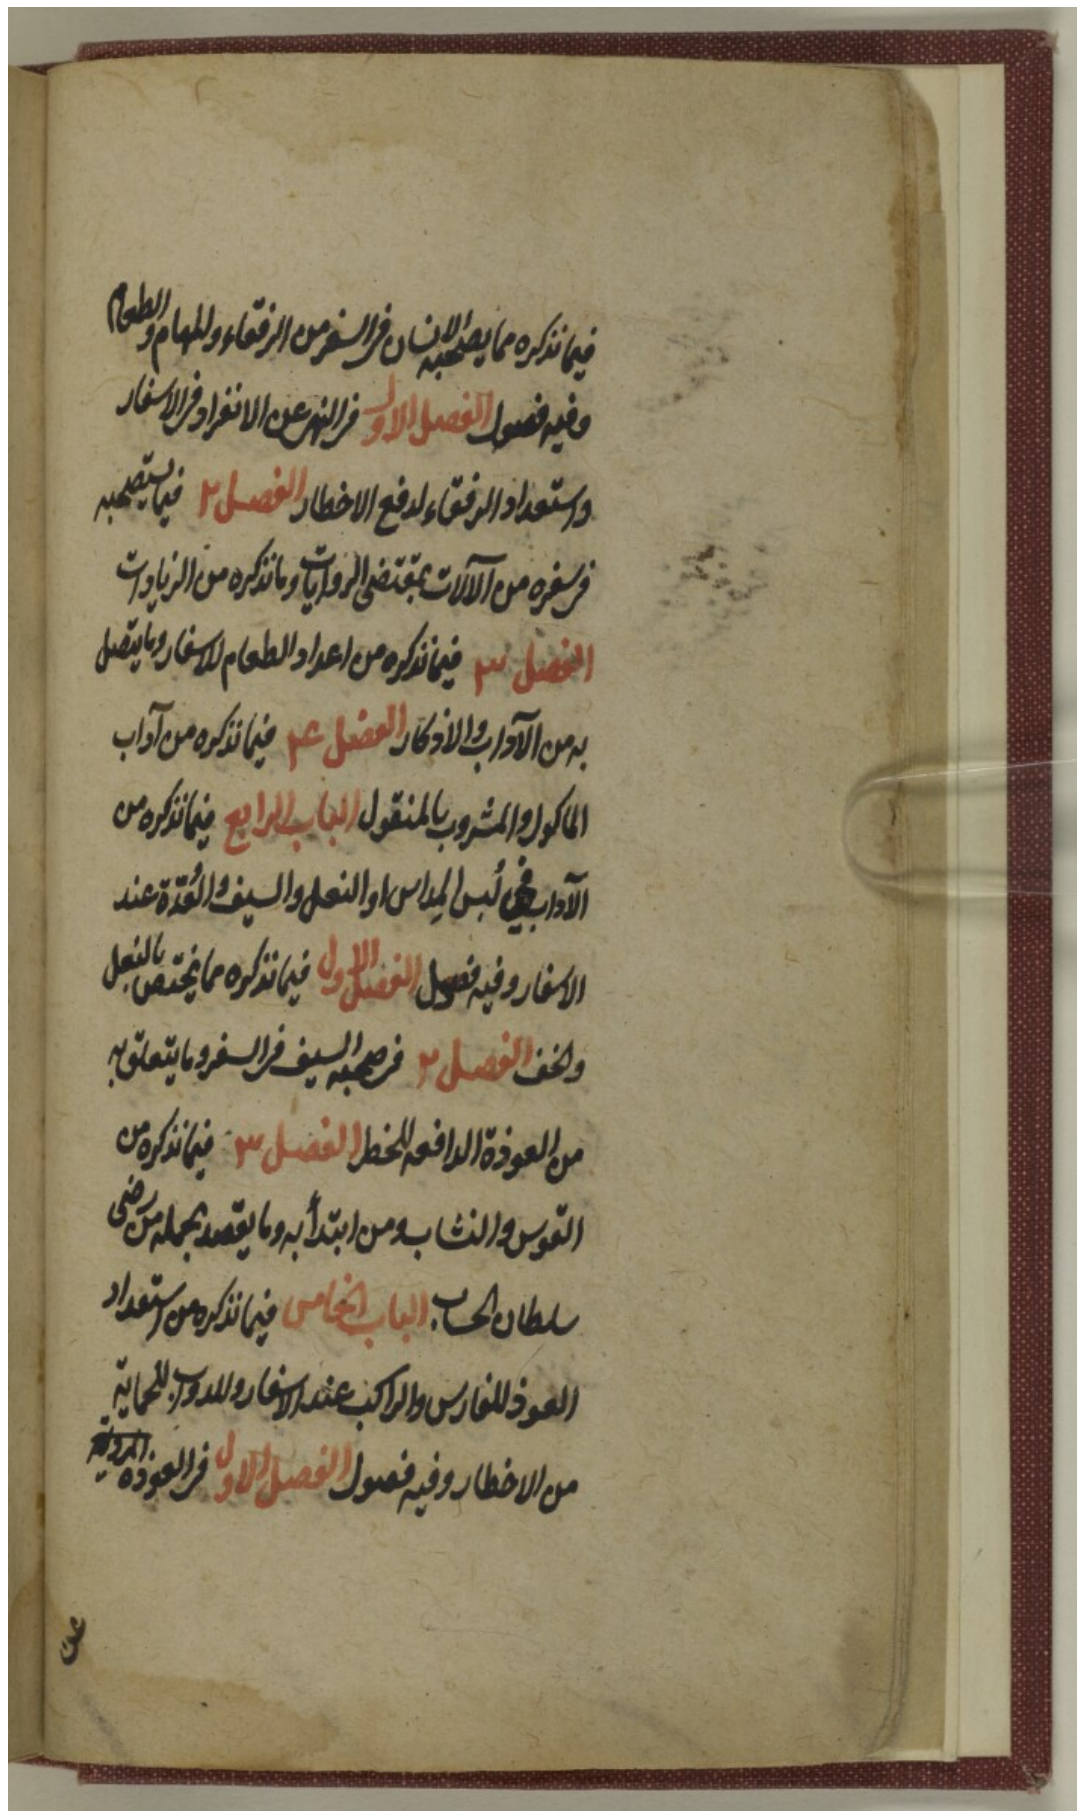 فيما نذكره مما يصحبه الانسان في السفر من الرفقاء والمهام والطعام
وفيه فصول الفصل الاول في النهي عن الانفراد في الاسفار
واستعداد الرفقاء لدفع الاخطار الفصل ۲ فيما يستصحبه
في سفره من الآلات بمقتضى الروايات وما نذكره من الزيادات
الفصل ۳ فيما نذكره من اعداد الطعام للاسفار وما يتصل
به من الآداب والاذكار الفصل ۴ فيما نذكره من آداب
الماكول والمشروب بالمنقول الباب الرابع فيما نذكره من
الآداب في لُبس المِداس او النعل والسيف والعُدّة عند
الاسفار وفيه فصول الفصل الاول فيما نذكره مما يختص بالنعل
والخف الفصل ۲ في صحبه السيف في السفر وما يتعلق به
من العوذة الدافعه للخطر الفصل ۳ فيما نذكره من
القوس والنشاب ومن ابتدأ به وما يقصد بحمله من رضى
سلطان الحساب الباب الخامس فيما نذكره من استعداد
العوذ للفارس والراكب عند الاسفار وللدواب للحماية
من الاخطار وفيه فصول الفصل الاول في العوذه المروية
عن